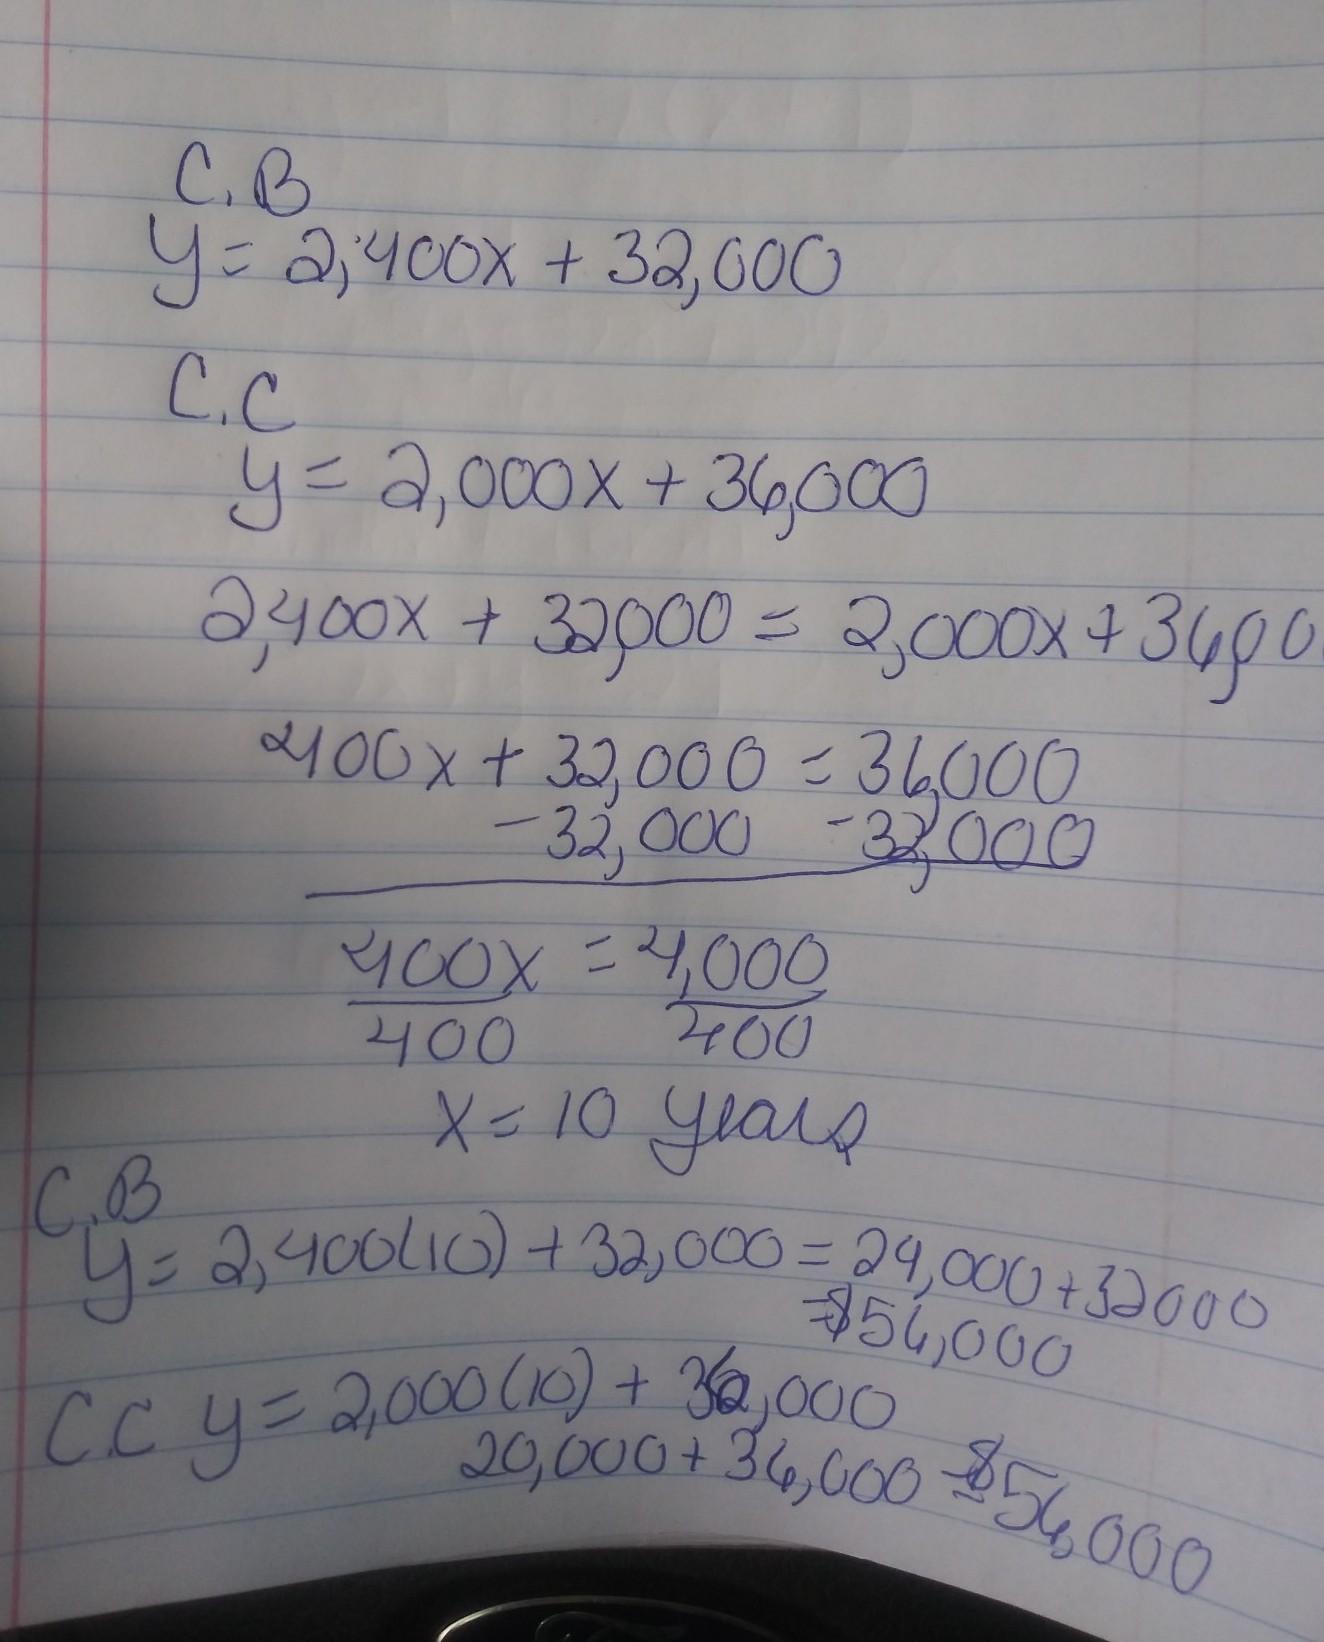 C.B
y = 2,400x + 32,000
C.C
y = 2,000x + 36,000
2,400x + 32,000 = 2,000x + 36,00
400x + 32,000 = 36,000
-32,000 -32,000
400x = 4,000
400 400
x = 10 years
C.B
y = 2,400(10) + 32,000 = 24,000 + 32000
= $56,000
C.C y = 2,000(10) + 36,000
20,000 + 36,000 = $56,000